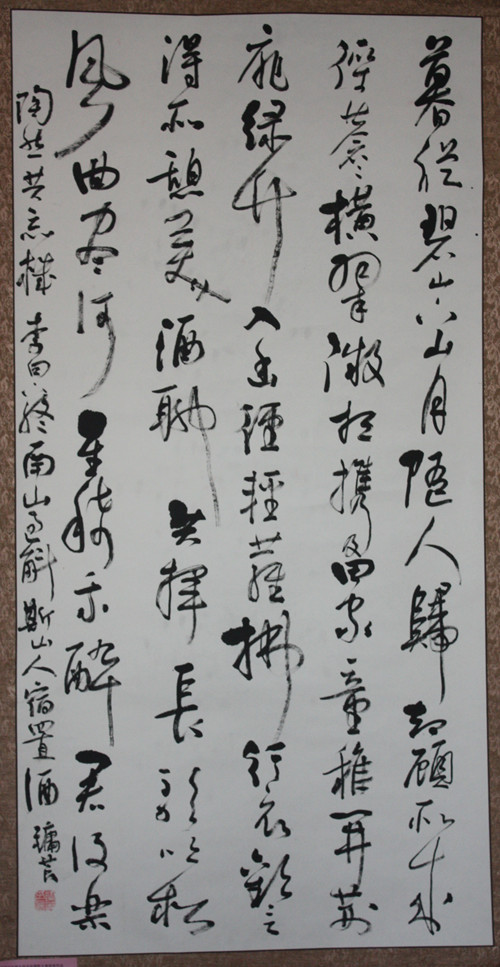 暮從碧山下山月隨人歸却顧所來
徑蒼々橫翠微相携及田家童稚開荆
扉緑竹入幽徑輕蘿拂行衣歡言
得所憩美酒聊共揮長歌吟松
風曲盡河星稀我醉君復樂
陶然共忘機 李白下終南山過斛斯山人宿置酒